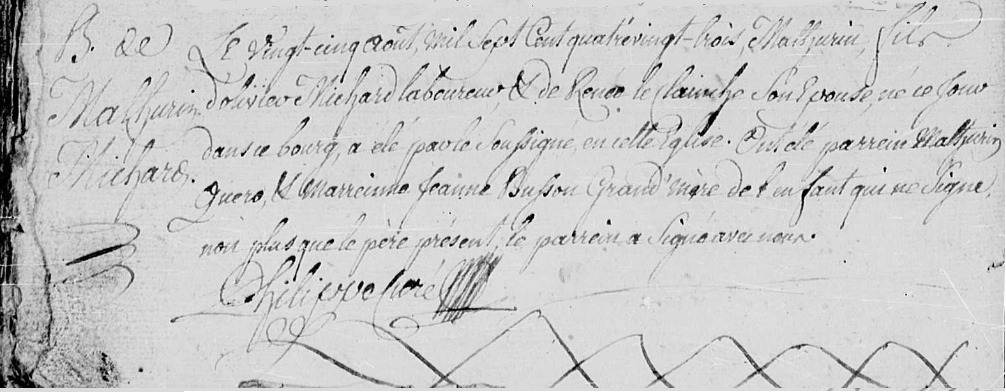 B. de
Mathurin
Michard.
Le vingt-cinq août, mil Sept Cent quatrevingt-trois Mathurin, fils
d'olivier Michard laboureur, & de Renée le Clainche Son Epouse, né ce Jour
dans ce bourg, a été par le Soussigné, en cette Eglise. Ont été parrein Mathurin
Quero, & Marreinne Jeanne Busson Grand'Mère de l'enfant qui ne Signe,
non plus que le père présent, le parrein a Signé avec nous.
Philippe Curé